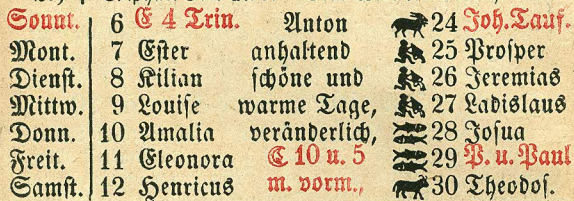 Sonnt. 6 E 4 Trin. Anton 24 Joh. Tauf.
Mont. 7 Ester anhaltend 25 Prosper
Dienst. 8 Kilian schöne und 26 Jeremias
Mittw. 9 Louise warme Tage, 27 Ladislaus
Donn. 10 Amalia veränderlich, 28 Josua
Freit. 11 Eleonora ☾ 10 u. 5 29 P. u. Paul
Samst. 12 Henricus m. vorm., 30 Theodos.